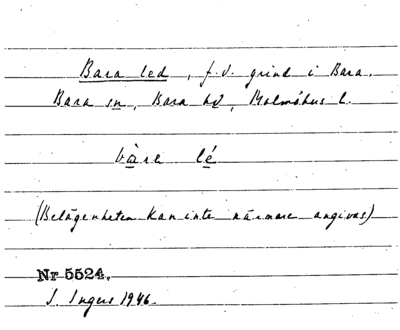 Bara led, f.d. grind i Bara.
Bara sn, Bara hd, Malmöhus l.
bàra lé
(Belägenheten kan inte närmare angivas)
Nr 5524.
I. Ingers 1946.